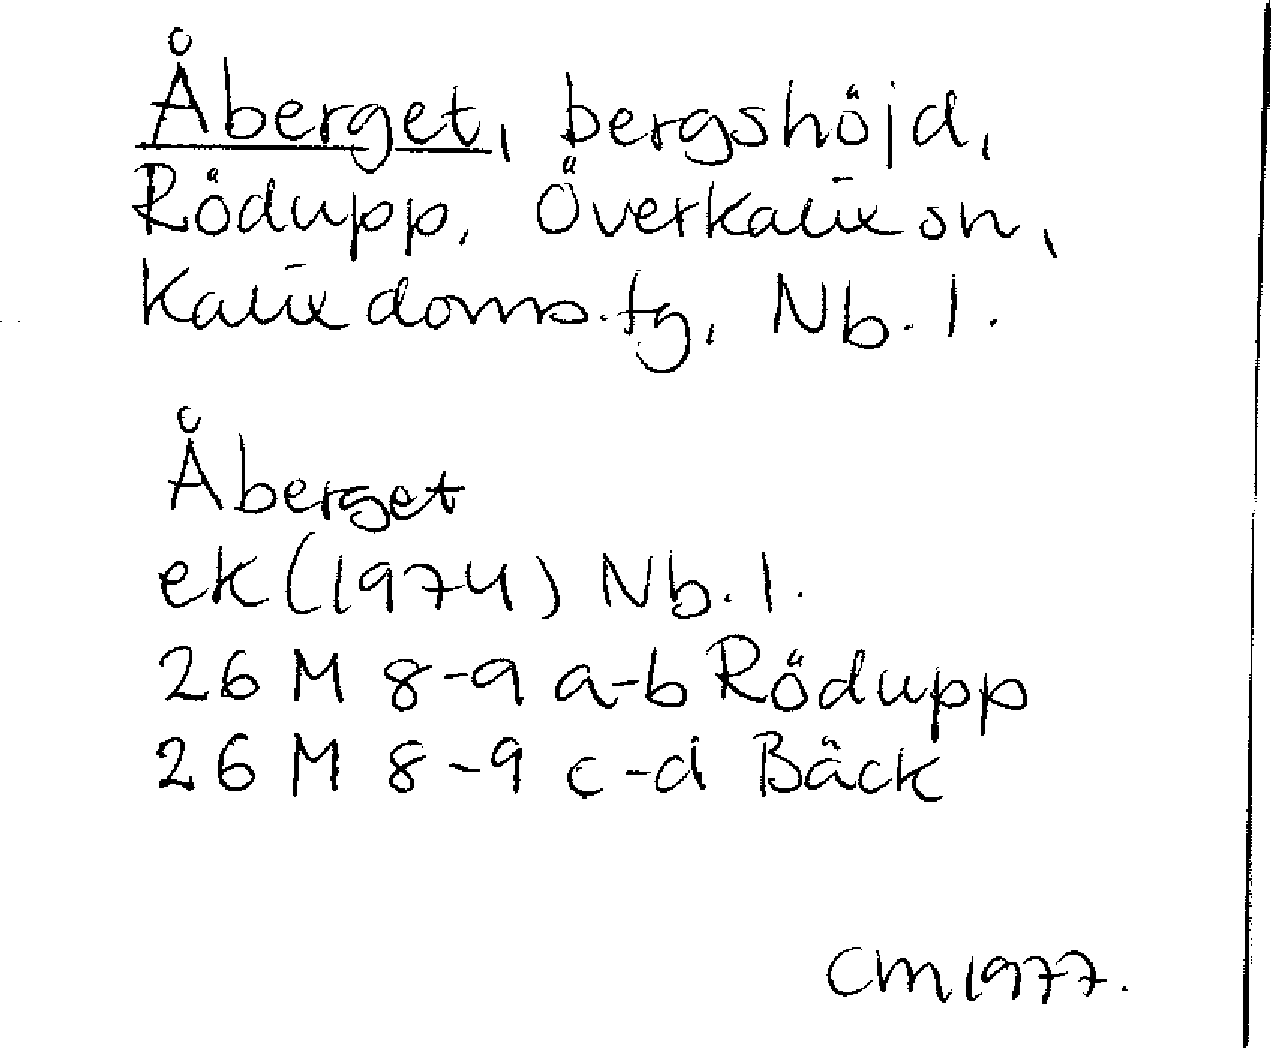 Åberget, bergshöjd,
Rödupp, Överkalix sn,
Kalix doms.tg, Nb. l.
Åberget
ek (1974) Nb. l.
26 M 8-9 a-b Rödupp
26 M 8-9 c-d Bäck
CM 1977.